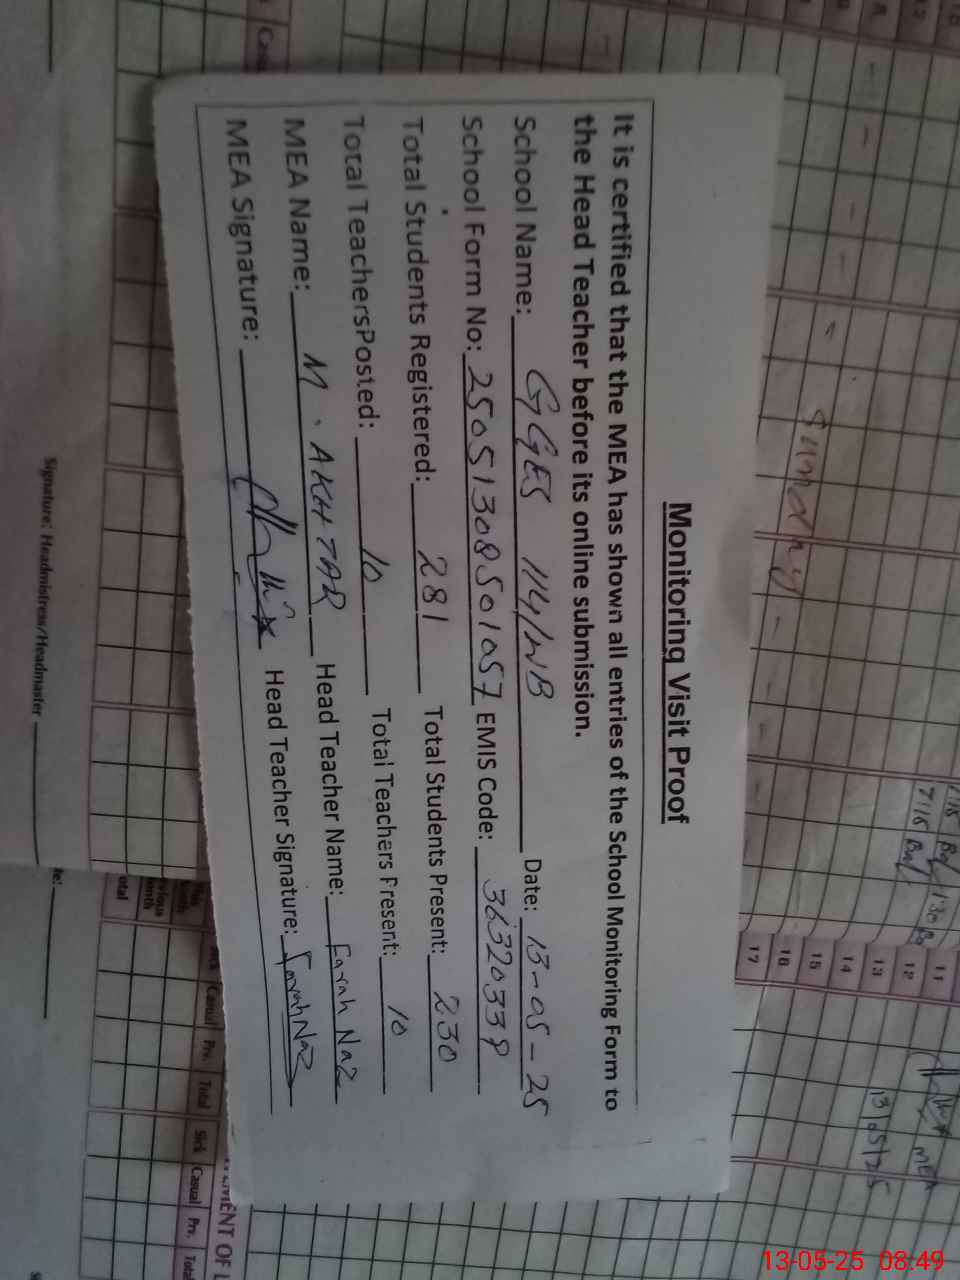 Monitoring Visit Proof
It is certified that the MEA has shown all entries of the School Monitoring Form to
the Head Teacher before its online submission.
School Name: GGES 114/WB Date: 13-05-25
School Form No: 25051308501057 EMIS Code: 36320339
Total Students Registered: 281 Total Students Present: 230
Total TeachersPosted: 10 Total Teachers Present: 10
MEA Name: M. AKHTAR Head Teacher Name: Farah Naz
MEA Signature: Head Teacher Signature: Farah Naz
Sunday
7:15
11
12
13
14
15
16
17
MEA
13/05/25
Signature: Headmistress/Headmaster
Casual Prv. Total Sick Casual Prv. Total
MENT OF L
13-05-25 08:49